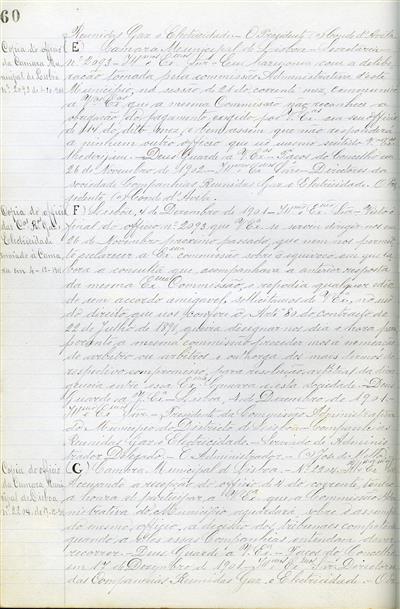 60
Reunidas Gaz e Electricidade. - O Presidente (a) Conde d'Avila
Copia do officio
da Camara Mu-
nicipal de Lisboa
Nº 2093 de
E) Camara Municipal de Lisboa - Secretaria -
Nº 2093 - Illmos e Exmos Snrs - Em harmonia com a delibe-
ração tomada pela commissão Administrativa d'este
Municipio, na sessão de 21 do corrente mez, communico
a V.as Ex.as que a mesma Commissão não reconhece a
obrigação do pagamento exigido por V.as Ex.as em seu officio
de 14 do dito mez, e bem assim que não responderá
a nenhum outro officio que no mesmo sentido V.as Ex.as
lhe dirijam. - Deus Guarde a V.as Ex.as - Paços do Concelho em
26 de Novembro de 190 - Illmos e Exmos Snrs - Directores da
Sociedade Companhias Reunidas Gaz e Electricidade. O Pre-
sidente, (a) Conde d'Avila.
Copia do officio
das Cas Rdas G.
Electricidade
enviado á Cama-
ra em 4-12-901
F) Lisboa, 4 de Dezembro de 1901 - Illmo e Exmo Snr - Visto o
final do officio nº 2093 que V. Exa se serviu dirigir-nos em
26 de Novembro proximo passado, que nem nos permit-
te esclarecer a Exma commissão sobre o equivoco em que la-
bora a consulta que acompanhava a anterior resposta
da mesma Exma Commissão, e repudia qualquer idéa
de um accordo amigavel, solicitamos de V. Exa, no uso
do direito que nos confere o Artº 8 do contracto de
22 de Julho de 1891, queira designar-nos dia e hora para
perante a mesma commissão proceder-mos a nomeação
de arbitro ou arbitros e outhorga dos mais termos do
respectivo compromisso, para resolução arbitral da diver-
gencia entre essa Exma Camara e esta Sociedade - Deus
Guarde a V. Exa - Lisboa, 4 de Dezembro de 1901 -
Illmo e Exmo Snr. - Presidente da Commissão Administrativa
do Municipio do Districto de Lisboa - Companhias
Reunidas Gaz e Electricidade - Servindo de Adminis-
trador Delegado - O Administrador - (a)
Copia do officio
da Camara Muni-
cipal de Lisboa
Nº 2204 de
G) Camara Municipal de Lisboa. - Nº 2204 -
Accusando a recepção do officio de 4 do corrente, tenho
a honra de participar a V. Exa que a Commissão Admi-
nistrativa do Municipio aguardará, sobre o assumpto
do mesmo officio, a decisão dos Tribunaes competentes
quando a elles essas Companhias entendam dever
recorrer. - Deus Guarde a V. Exa - Paços do Concelho
em 17 de Dezembro de 1901 - Illmos e Exmos Snrs Directores
das Companhias Reunidas Gaz e Electricidade. - O Pre